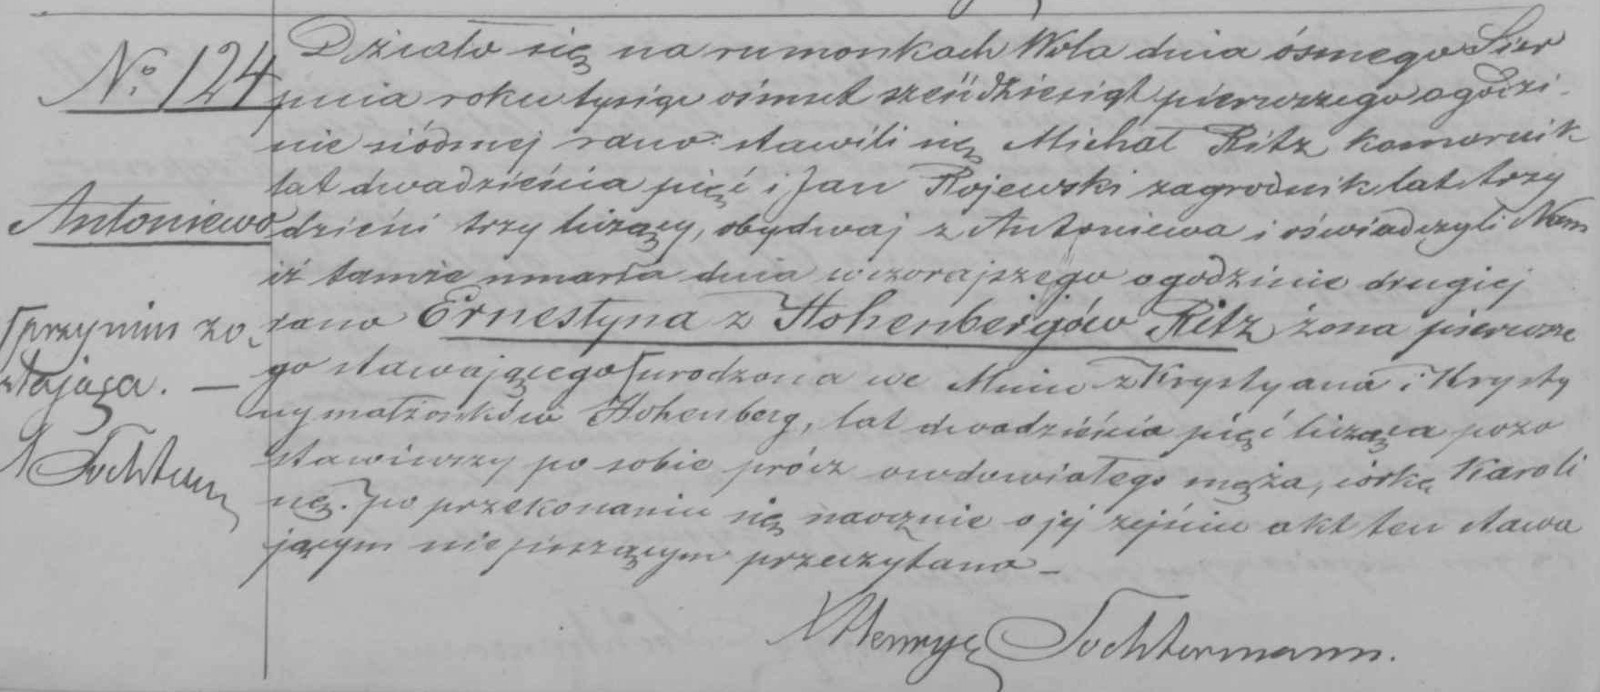 № 124
Antoniewo
[przy nim zo-
stająca. —
N Tochterm
Działo się na rumonkach Wola dnia ósmego Sier
pnia roku tysiąc ośmset sześćdziesiąt pierwszego o godzi-
nie siódmej rano stawili się Michał Ritz komornik
lat dwadzieścia pięć i Jan Rojewski zagrodnik lat trzy
dzieści trzy liczący, obydwaj z Antoniewa i oświadczyli Nam
iż tamże umarła dnia wczorajszego o godzinie drugiej
rano Ernestyna z Hohenbergów Ritz żona pierwsze
go stawającego [urodzona we Mniu z Krystyana i Krysty
ny małżonków Hohenberg, lat dwadzieścia pięć licząca pozo
stawiwszy po sobie prócz owdowiałego męża, córkę Karoli
nę. Po przekonaniu się naocznie o jej zejściu akt ten stawa
jącym niepiszącym przeczytano —
Henryk Tochtermann.